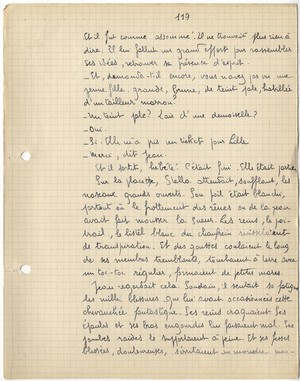 117
Et il fut comme assommé. Il ne trouvait plus rien à
dire. Il lui fallut un grand effort pour rassembler
ses idées, retrouver sa présence d'esprit.
- Et, demanda-t-il encore, vous n'avez pas vu une
jeune fille, grande, brune, de teint pâle, habillée
d'un tailleur marron?
- Un teint pâle? L'air d'une demoiselle?
- Oui.
- Si. Elle m'a pris un ticket pour Lille
- Merci, dit Jean.
Et il sortit, hébété. C'était fini. Elle était partie.
Sur la placette, Stella attendait, soufflant, les
naseaux grands ouverts. Son poil était blanchi,
partout où le frottement des rênes ou de la
avait fait mousser la sueur. Les reins, le poi-
trail, le listel blanc du chanfrein ruisselaient
de transpiration. Et des gouttes coulaient le long
de ses membres tremblants, tombaient à terre avec
un toc-toc régulier, formaient de petites mares.
Jean regardait cela. Soudain, il sentait sa fatigue
les mille blessures que lui avait occasionnées cette
chevauchée fantastique. Ses reins craquaient. Ses
épaules et ses bras engourdis lui faisaient mal. Ses
jambes raides le supportaient à peine. Et ses fesses
blessées, douloureuses, sentaient au moindre mou-